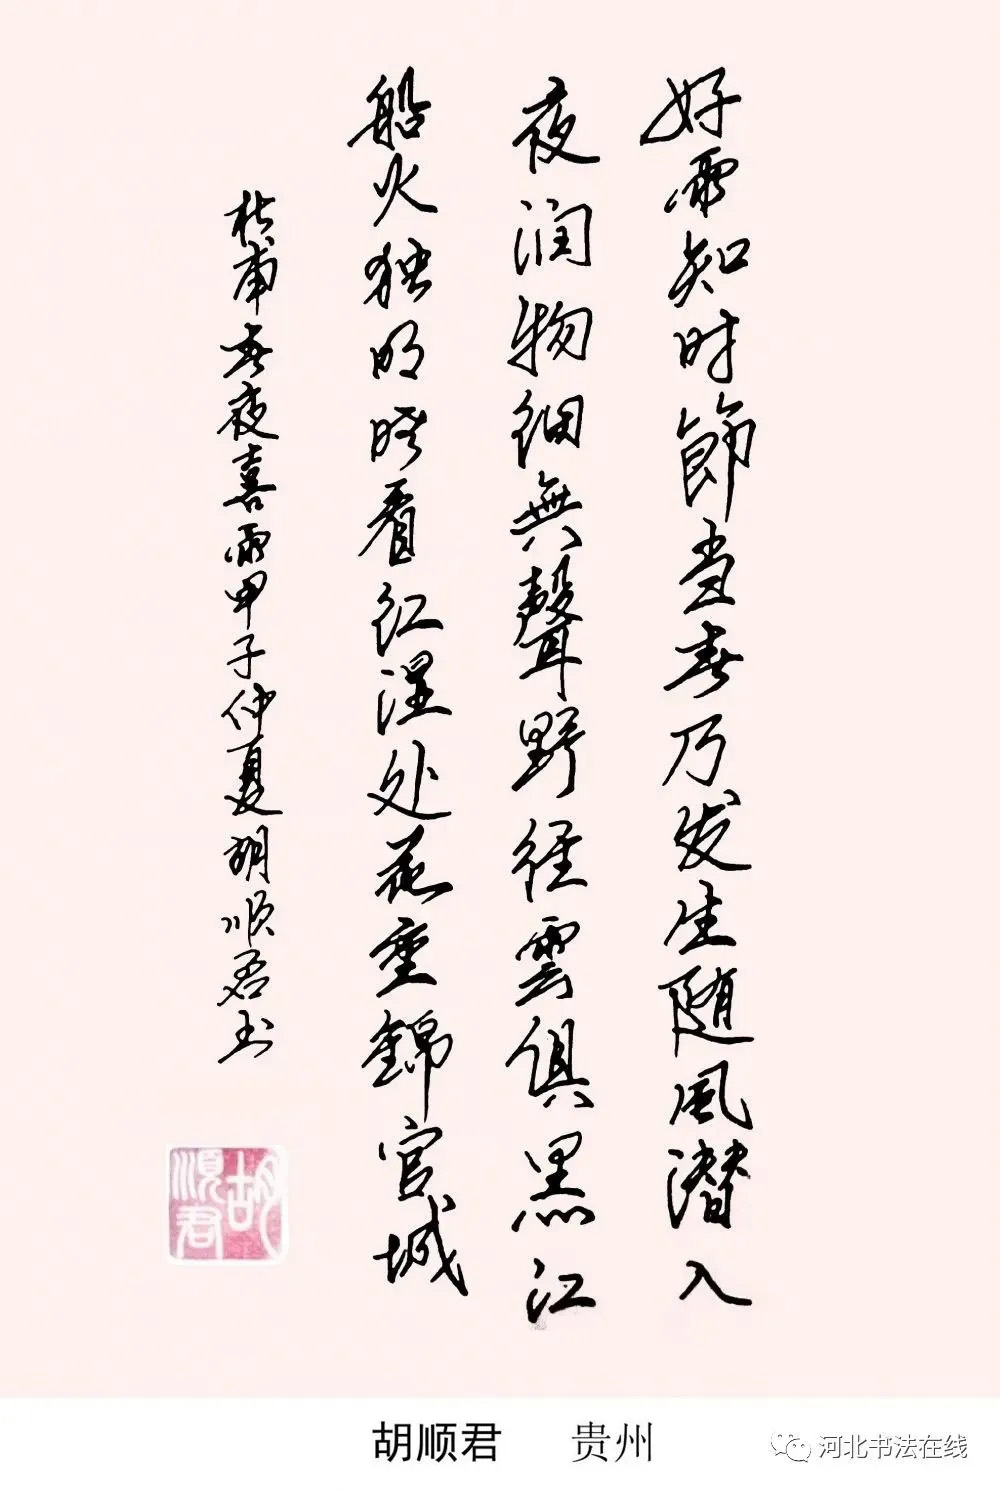 好雨知时節当春乃发生随風潜入
夜润物细無聲野径雲俱黑江
船火独明晓看红湿处花重錦官城
杜甫春夜喜雨甲子仲夏胡顺君书
胡順君
胡顺君 贵州
河北书法在线